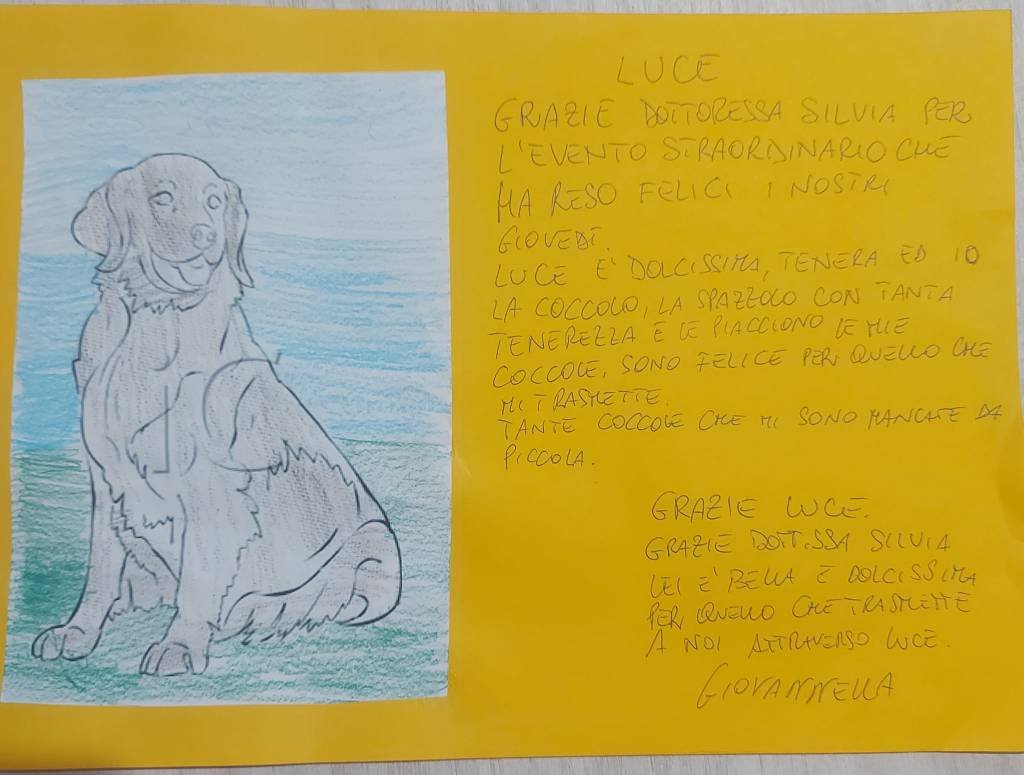 LUCE
GRAZIE DOTTORESSA SILVIA PER
L'EVENTO STRAORDINARIO CHE
HA RESO FELICI I NOSTRI
GIOVEDÌ.
LUCE E' DOLCISSIMA, TENERA ED IO
LA COCCOLO, LA SPAZZOLO CON TANTA
TENEREZZA E LE PIACCIONO LE MIE
COCCOLE, SONO FELICE PER QUELLO CHE
MI TRASMETTE.
TANTE COCCOLE CHE MI SONO MANCATE DA
PICCOLA.
GRAZIE LUCE.
GRAZIE DOTT.SSA SILVIA
LEI E' BELLA E DOLCISSIMA
PER QUELLO CHE TRASMETTE
A NOI ATTRAVERSO LUCE.
GIOVANNELLA